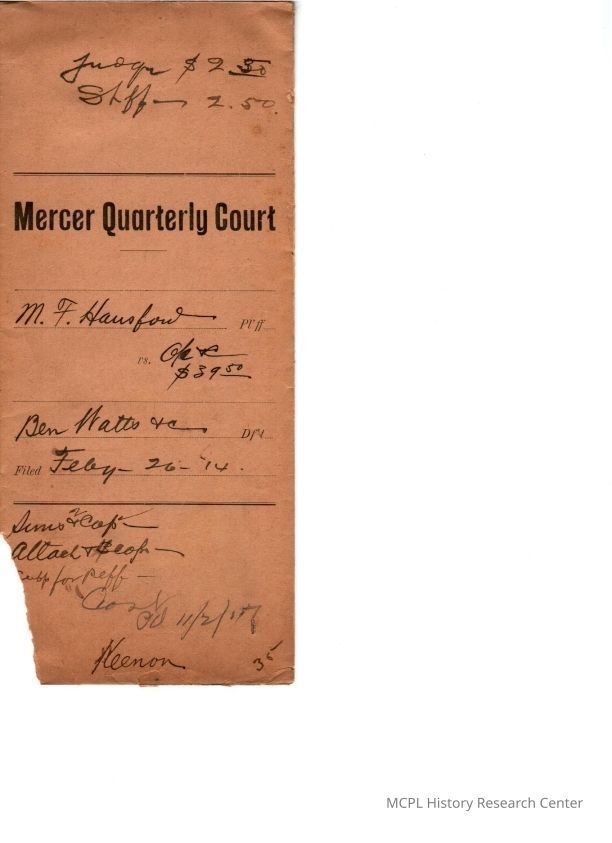 Judge $2.50
Shff 2.50
Mercer Quarterly Court
M. F. Hansford Pl'ff
vs.
$39.50
Ben Watts &c Df't
Filed Feby 26 - '14.
Sums & 2 Cop
Attach & cop
for Plff
Pd 11/2/17
Keenon 35
MCPL History Research Center